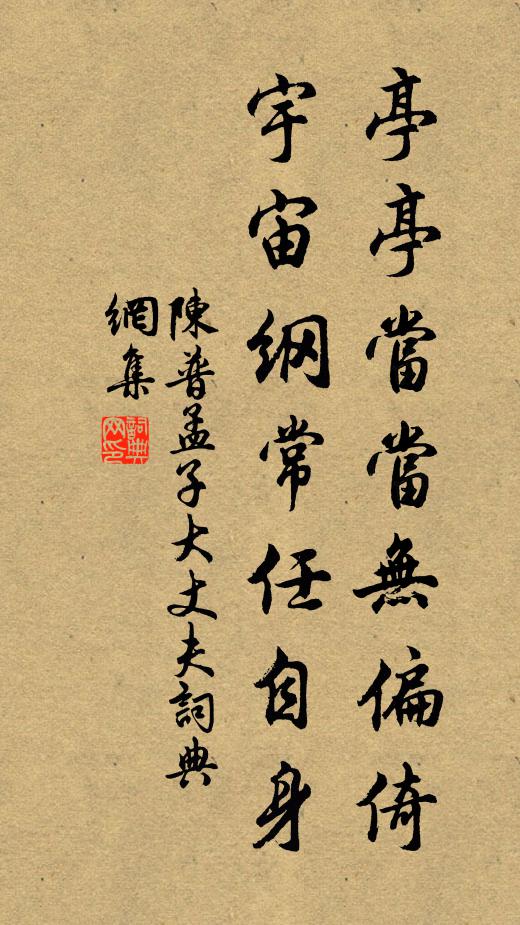 亭亭當當無偏倚
宇宙纲常任自身
陳普孟子大丈夫詞典
網集
詞典
网印